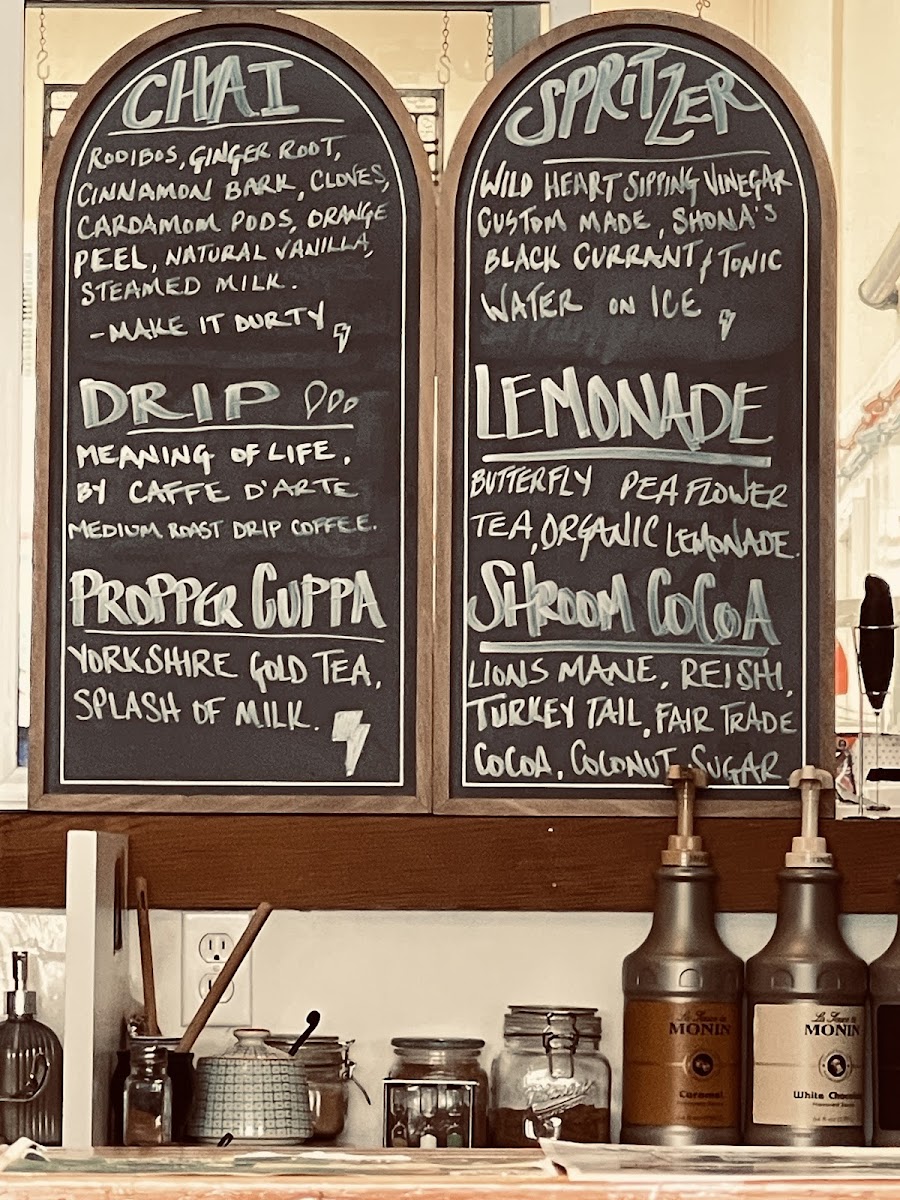 CHAI
ROOIBOS, GINGER ROOT,
CINNAMON BARK, CLOVES,
CARDAMOM PODS, ORANGE
PEEL, NATURAL VANILLA,
STEAMED MILK.
-MAKE IT DURTY
DRIP
MEANING OF LIFE.
BY CAFFE D'ARTE
MEDIUM ROAST DRIP COFFEE.
PROPPER CUPPA
YORKSHIRE GOLD TEA,
SPLASH OF MILK.
SPRITZER
WILD HEART SIPPING VINEGAR
CUSTOM MADE, SHONA'S
BLACK CURRANT & TONIC
WATER ON ICE
LEMONADE
BUTTERFLY PEA FLOWER
TEA, ORGANIC LEMONADE.
SHROOM COCOA
LIONS MANE, REISHI,
TURKEY TAIL, FAIR TRADE
COCOA, COCONUT SUGAR
MONIN
Caramel
MONIN
White